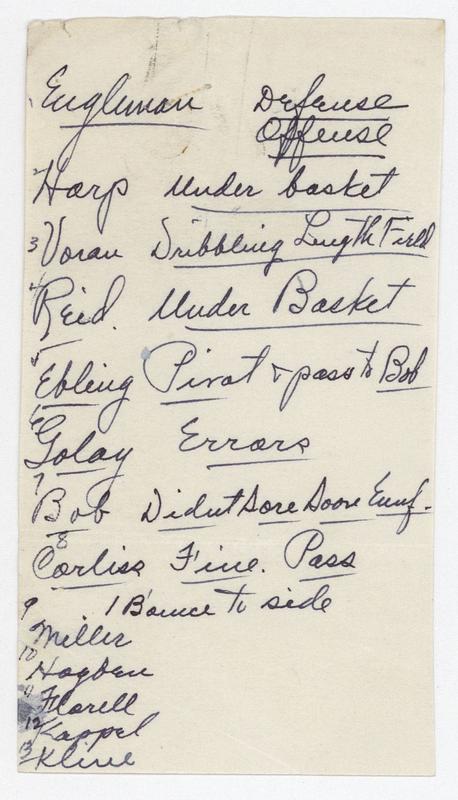 1 Engleman Defense
Offense
2 Harp Under basket
3 Voran Dribbling Length Field
4 Reid. Under Basket
5 Ebling Pivot & pass to Bob
6 Golay Errors
7 Bob Didnt Sore Soon Enuf.
8 Corliss Fine. Pass
1 Bounce to side
9 Miller
10 Hogben
11 Florell
12 Kappel
13 Kline